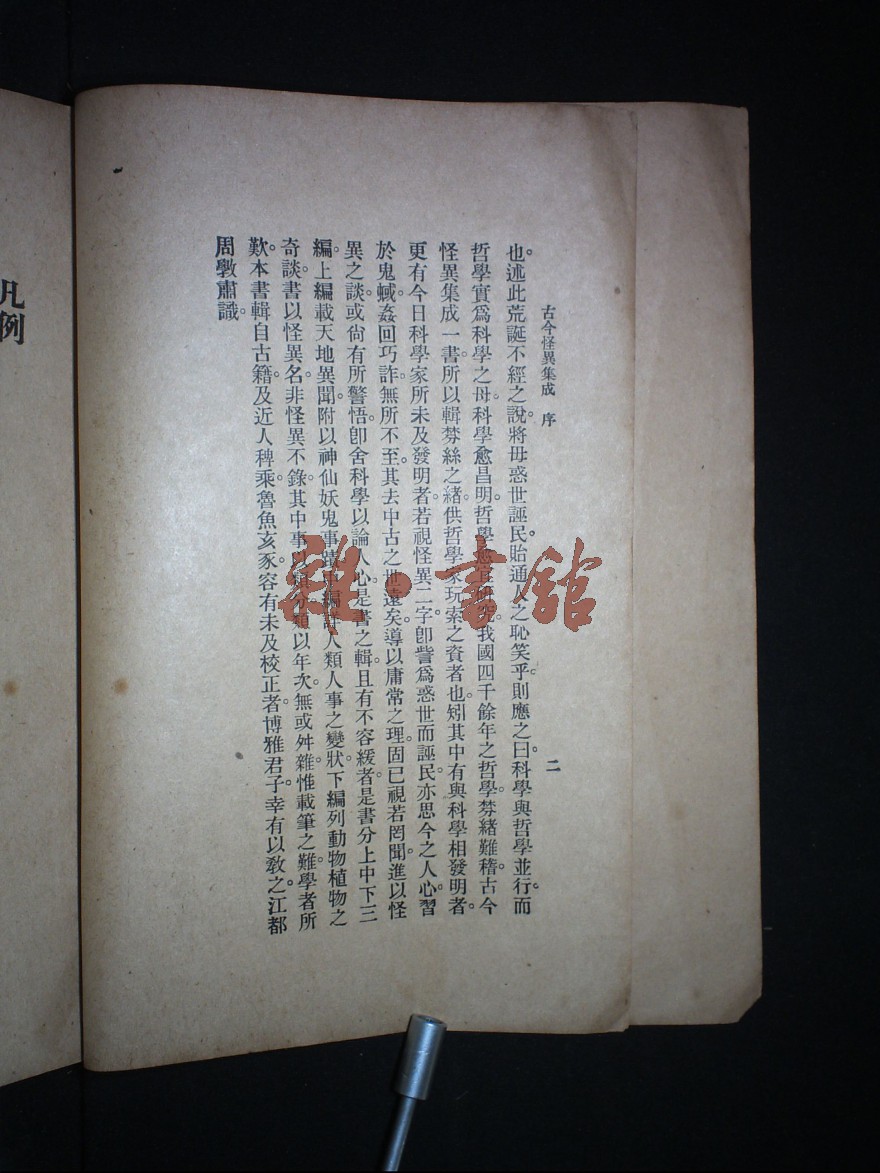 古今怪異集成 序
二
也。述此荒誕不經之說。將毋惑世誣民。貽通人之恥笑乎。則應之曰。科學與哲學並行。而
哲學實爲科學之母。科學愈昌明。哲學愈宜研究。我國四千餘年之哲學。棼緒難稽。古今
怪異集成一書。所以輯棼絲之緒。供哲學家玩索之資者也。矧其中有與科學相發明者。
更有今日科學家所未及發明者。若視怪異二字。卽訾爲惑世而誣民。亦思今之人心。習
於鬼蜮。姦回巧詐。無所不至。其去中古之世遠矣。導以庸常之理。固已視若罔聞。進以怪
異之談。或尙有所警悟。卽舍科學以論人心。是書之輯。且有不容緩者。是書分上中下三
編。上編載天地異聞。附以神仙妖鬼事蹟。中編詳人類人事之變狀。下編列動物植物之
奇談。書以怪異名。非怪異不錄。其中事以類分。類以年次。無或舛雜。惟載筆之難。學者所
歎。本書輯自古籍及近人稗乘。魯魚亥豕。容有未及校正者。博雅君子。幸有以敎之。江都
周斅肅識。
凡例
雜·書館